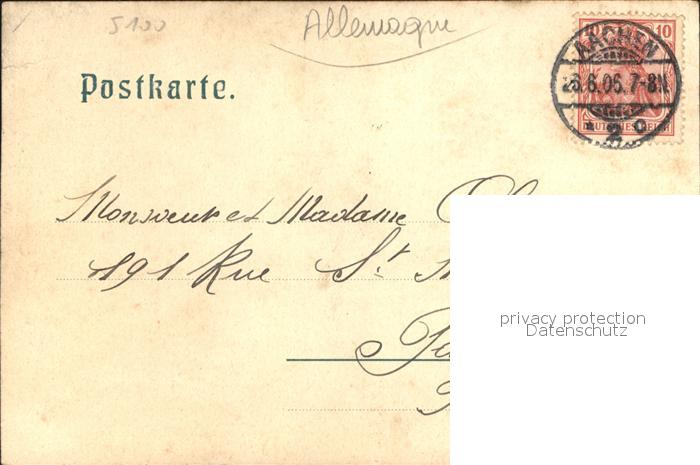 5100
Allemagne
10 10
AACHEN
26.6.05.7-8N.
* 2 c
DEUTSCHES REICH
Postkarte.
Monsieur et Madame
191 Rue St
privacy protection
Datenschutz